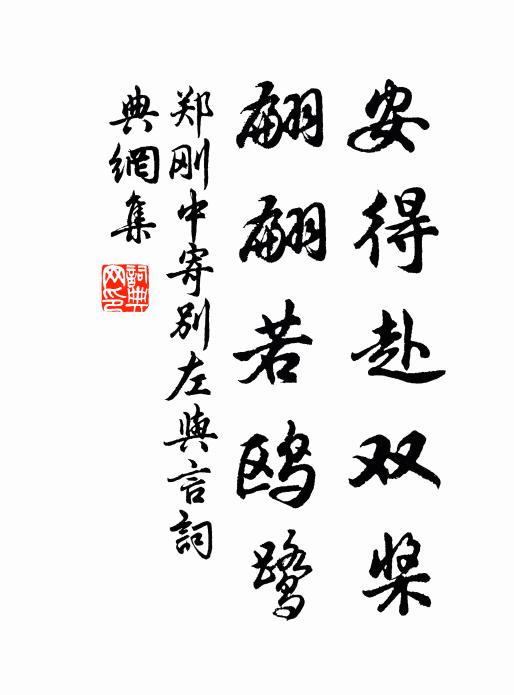 安得赴双桨
翩翩若鸥鹭
郑刚中寄别左與言詞
典網集
詞典
网印